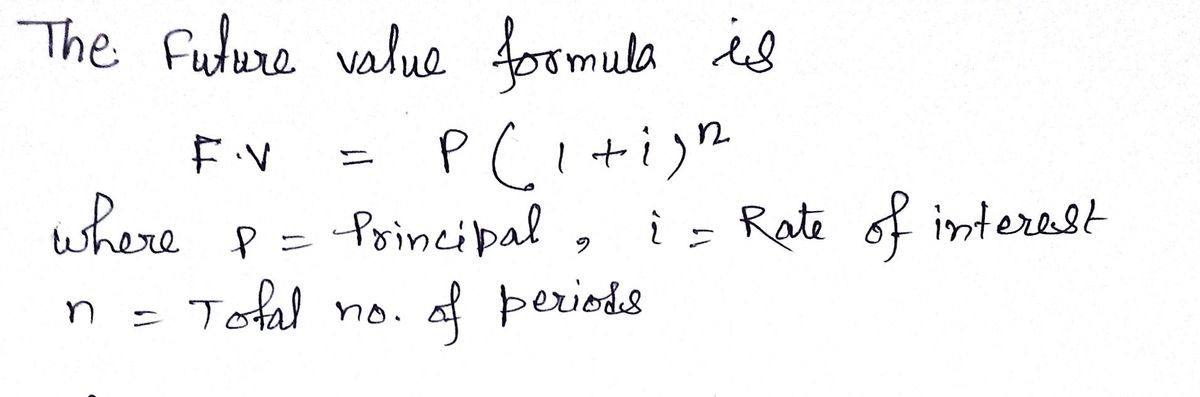 The Future value formula is
F.V = P(1+i)^n
where P = Principal, i = Rate of interest
n = Total no. of periods